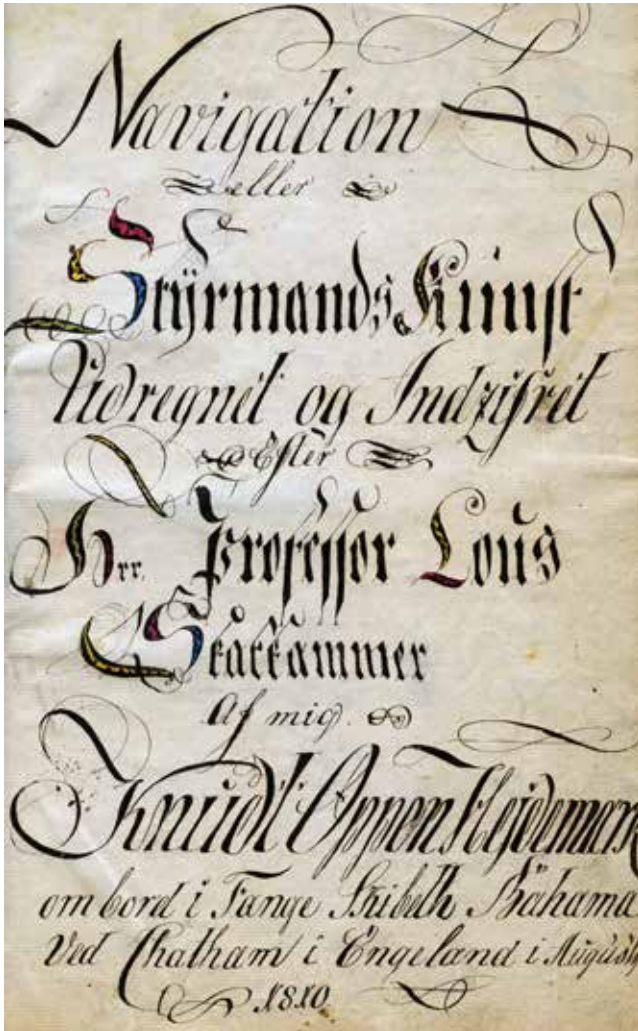 Navigation
eller
Stÿrmands Kunst
Udregnet og Indzifret
Efter
Hrr. Professor Lous
Skatkammer
Af mig.
Knudt Oppen Hejdemark
om bord i Fange Skibeth Bahama
Ved Chatham i Engeland i August
1810